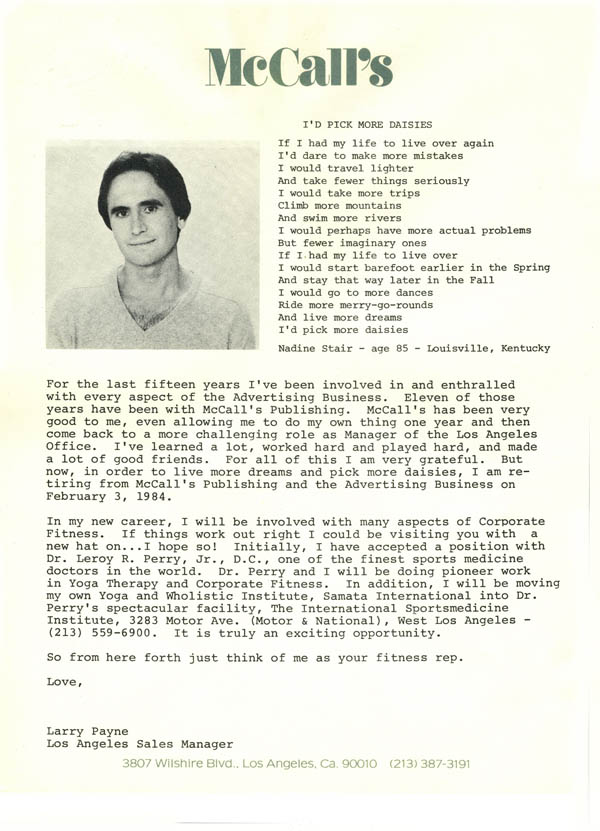 McCall's
I'D PICK MORE DAISIES
If I had my life to live over again
I'd dare to make more mistakes
I would travel lighter
And take fewer things seriously
I would take more trips
Climb more mountains
And swim more rivers
I would perhaps have more actual problems
But fewer imaginary ones
If I had my life to live over
I would start barefoot earlier in the Spring
And stay that way later in the Fall
I would go to more dances
Ride more merry-go-rounds
And live more dreams
I'd pick more daisies
Nadine Stair - age 85 - Louisville, Kentucky
For the last fifteen years I've been involved in and enthralled
with every aspect of the Advertising Business. Eleven of those
years have been with McCall's Publishing. McCall's has been very
good to me, even allowing me to do my own thing one year and then
come back to a more challenging role as Manager of the Los Angeles
Office. I've learned a lot, worked hard and played hard, and made
a lot of good friends. For all of this I am very grateful. But
now, in order to live more dreams and pick more daisies, I am re-
tiring from McCall's Publishing and the Advertising Business on
February 3, 1984.
In my new career, I will be involved with many aspects of Corporate
Fitness. If things work out right I could be visiting you with a
new hat on...I hope so! Initially, I have accepted a position with
Dr. Leroy R. Perry, Jr., D.C., one of the finest sports medicine
doctors in the world. Dr. Perry and I will be doing pioneer work
in Yoga Therapy and Corporate Fitness. In addition, I will be moving
my own Yoga and Wholistic Institute, Samata International into Dr.
Perry's spectacular facility, The International Sportsmedicine
Institute, 3283 Motor Ave. (Motor & National), West Los Angeles -
(213) 559-6900. It is truly an exciting opportunity.
So from here forth just think of me as your fitness rep.
Love,
Larry Payne
Los Angeles Sales Manager
3807 Wilshire Blvd., Los Angeles, Ca. 90010 (213) 387-3191